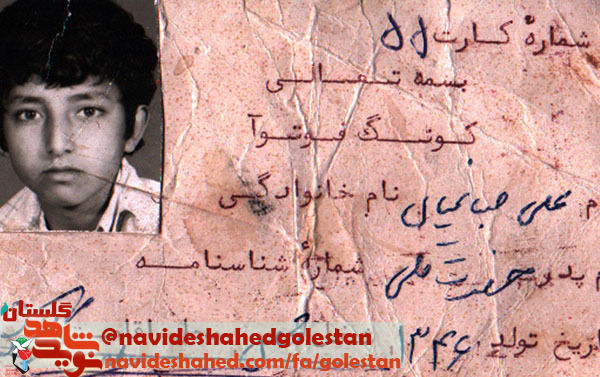 شمارهٔ کارت ۵۵
بسمه تعالی
کونگ فوتوآ
م علی نام خانوادگی
م پدر حضرت قلی شمارهٔ شناسنامه
اریخ تولد ۳۴۶
گلستان
نوید شاهد
@navideshahedgolestan
navideshahed.com/fa/golestan